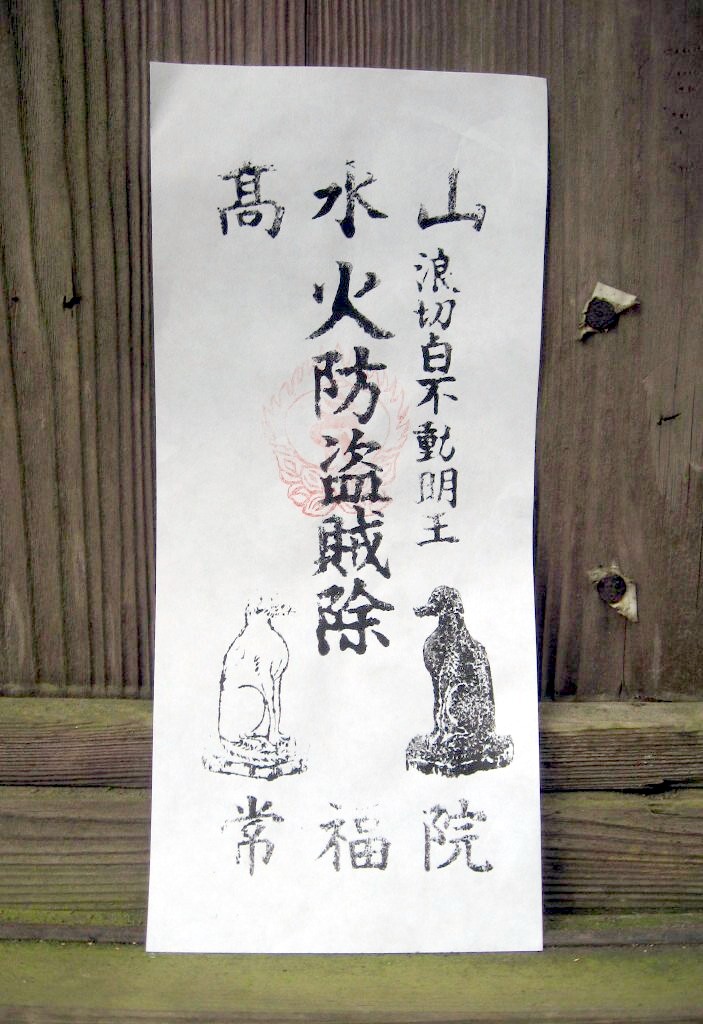 髙水山
浪切白不動明王
火防盗賊除
常福院